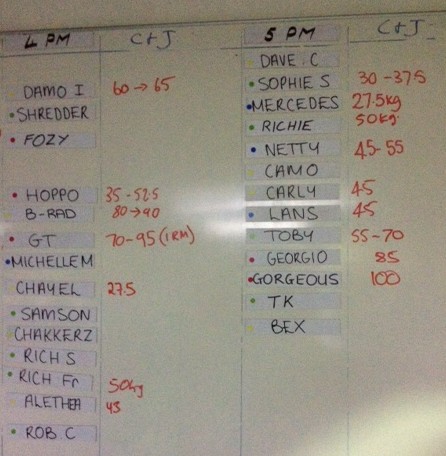 4 PM C+J
DAMO I 60→65
SHREDDER
FOZY
HOPPO 35-52.5
B-RAD 80→90
GT 70-95(1RM)
MICHELLEM
CHAYEL 27.5
SAMSON
CHAKKERZ
RICH S
RICH Fr 50kg
ALETHEA 43
ROB C
5 PM C+J
DAVE C
SOPHIE S 30-37.5
MERCEDES 27.5kg
RICHIE 50kg.
NETTY 45-55
CAMO
CARLY 45
LANS 45
TOBY 55-70
GEORGIO 85
GORGEOUS 100
TK
BEX